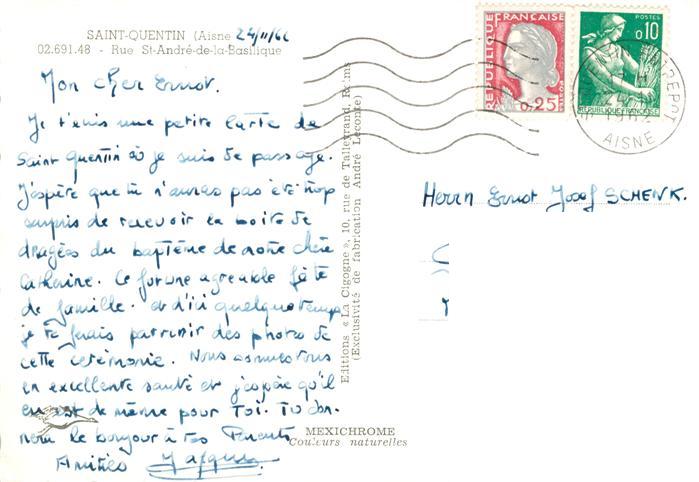 SAINT-QUENTIN (Aisne 24/11/62
02.691.48 - Rue St-André-de-la-Basilique
Mon cher Ernst.
Je t'envis une petite carte de
Saint quentin où je suis de passage.
J'espère que tu n'auras pas été trop
surpris de recevoir la boite de
dragées du baptême de notre chère
Catherine. Ce fut une agréable fête
de famille. et d'ici quelque temps
je te ferais parvenir des photos de
cette cérémonie. Nous sommes tous
en excellente santé et j'espère qu'il
en est de même pour Toi. Tu don-
nera le bonjour à tes Parents
Amitiés Jacques
Editions « La Cigogne », 10, rue de Talleyrand, Reims
(Exclusivité de fabrication André Leconte)
MEXICHROME
Couleurs naturelles
REPUBLIQUE FRANÇAISE
0,25
POSTES
POSTES
0,10
REPUBLIQUE FRANÇAISE
AISNE
Herrn Ernst Josef SCHENK.